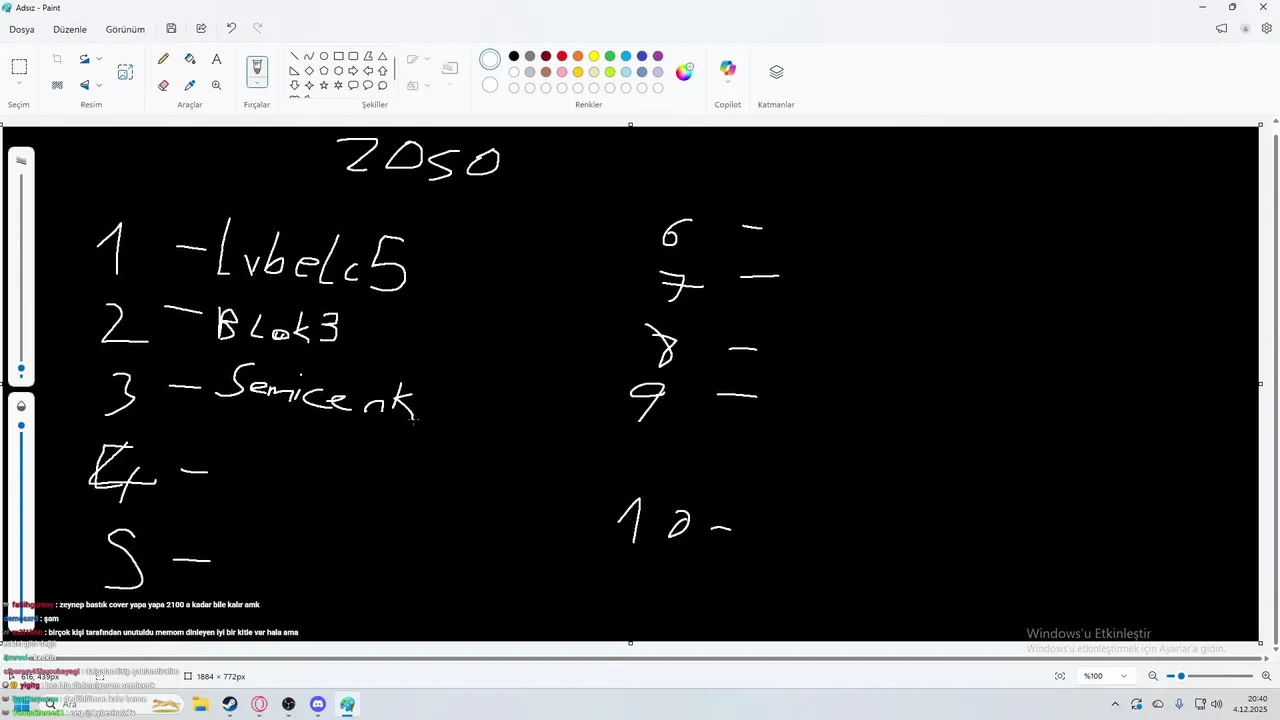 Adsız - Paint
Dosya Düzenle Görünüm
Seçim Resim Araçlar Fırçalar Şekiller Renkler Copilot Katmanlar
2050
1 - LvbeLc5
2 - BLok3
3 - Semicenk
4 -
5 -
6 -
7 -
8 -
9 -
10 -
: zeynep bastık cover yapa yapa 2100 a kadar bile kalır amk
: şam
: birçok kişi tarafından unutuldu memom dinleyen iyi bir kitle var hala ama
: keskin
Windows'u Etkinleştir
Windows'u etkinleştirmek için Ayarlar'a gidin.
616, 439px 1884 × 772px %100
Ara
20:40
4.12.2025